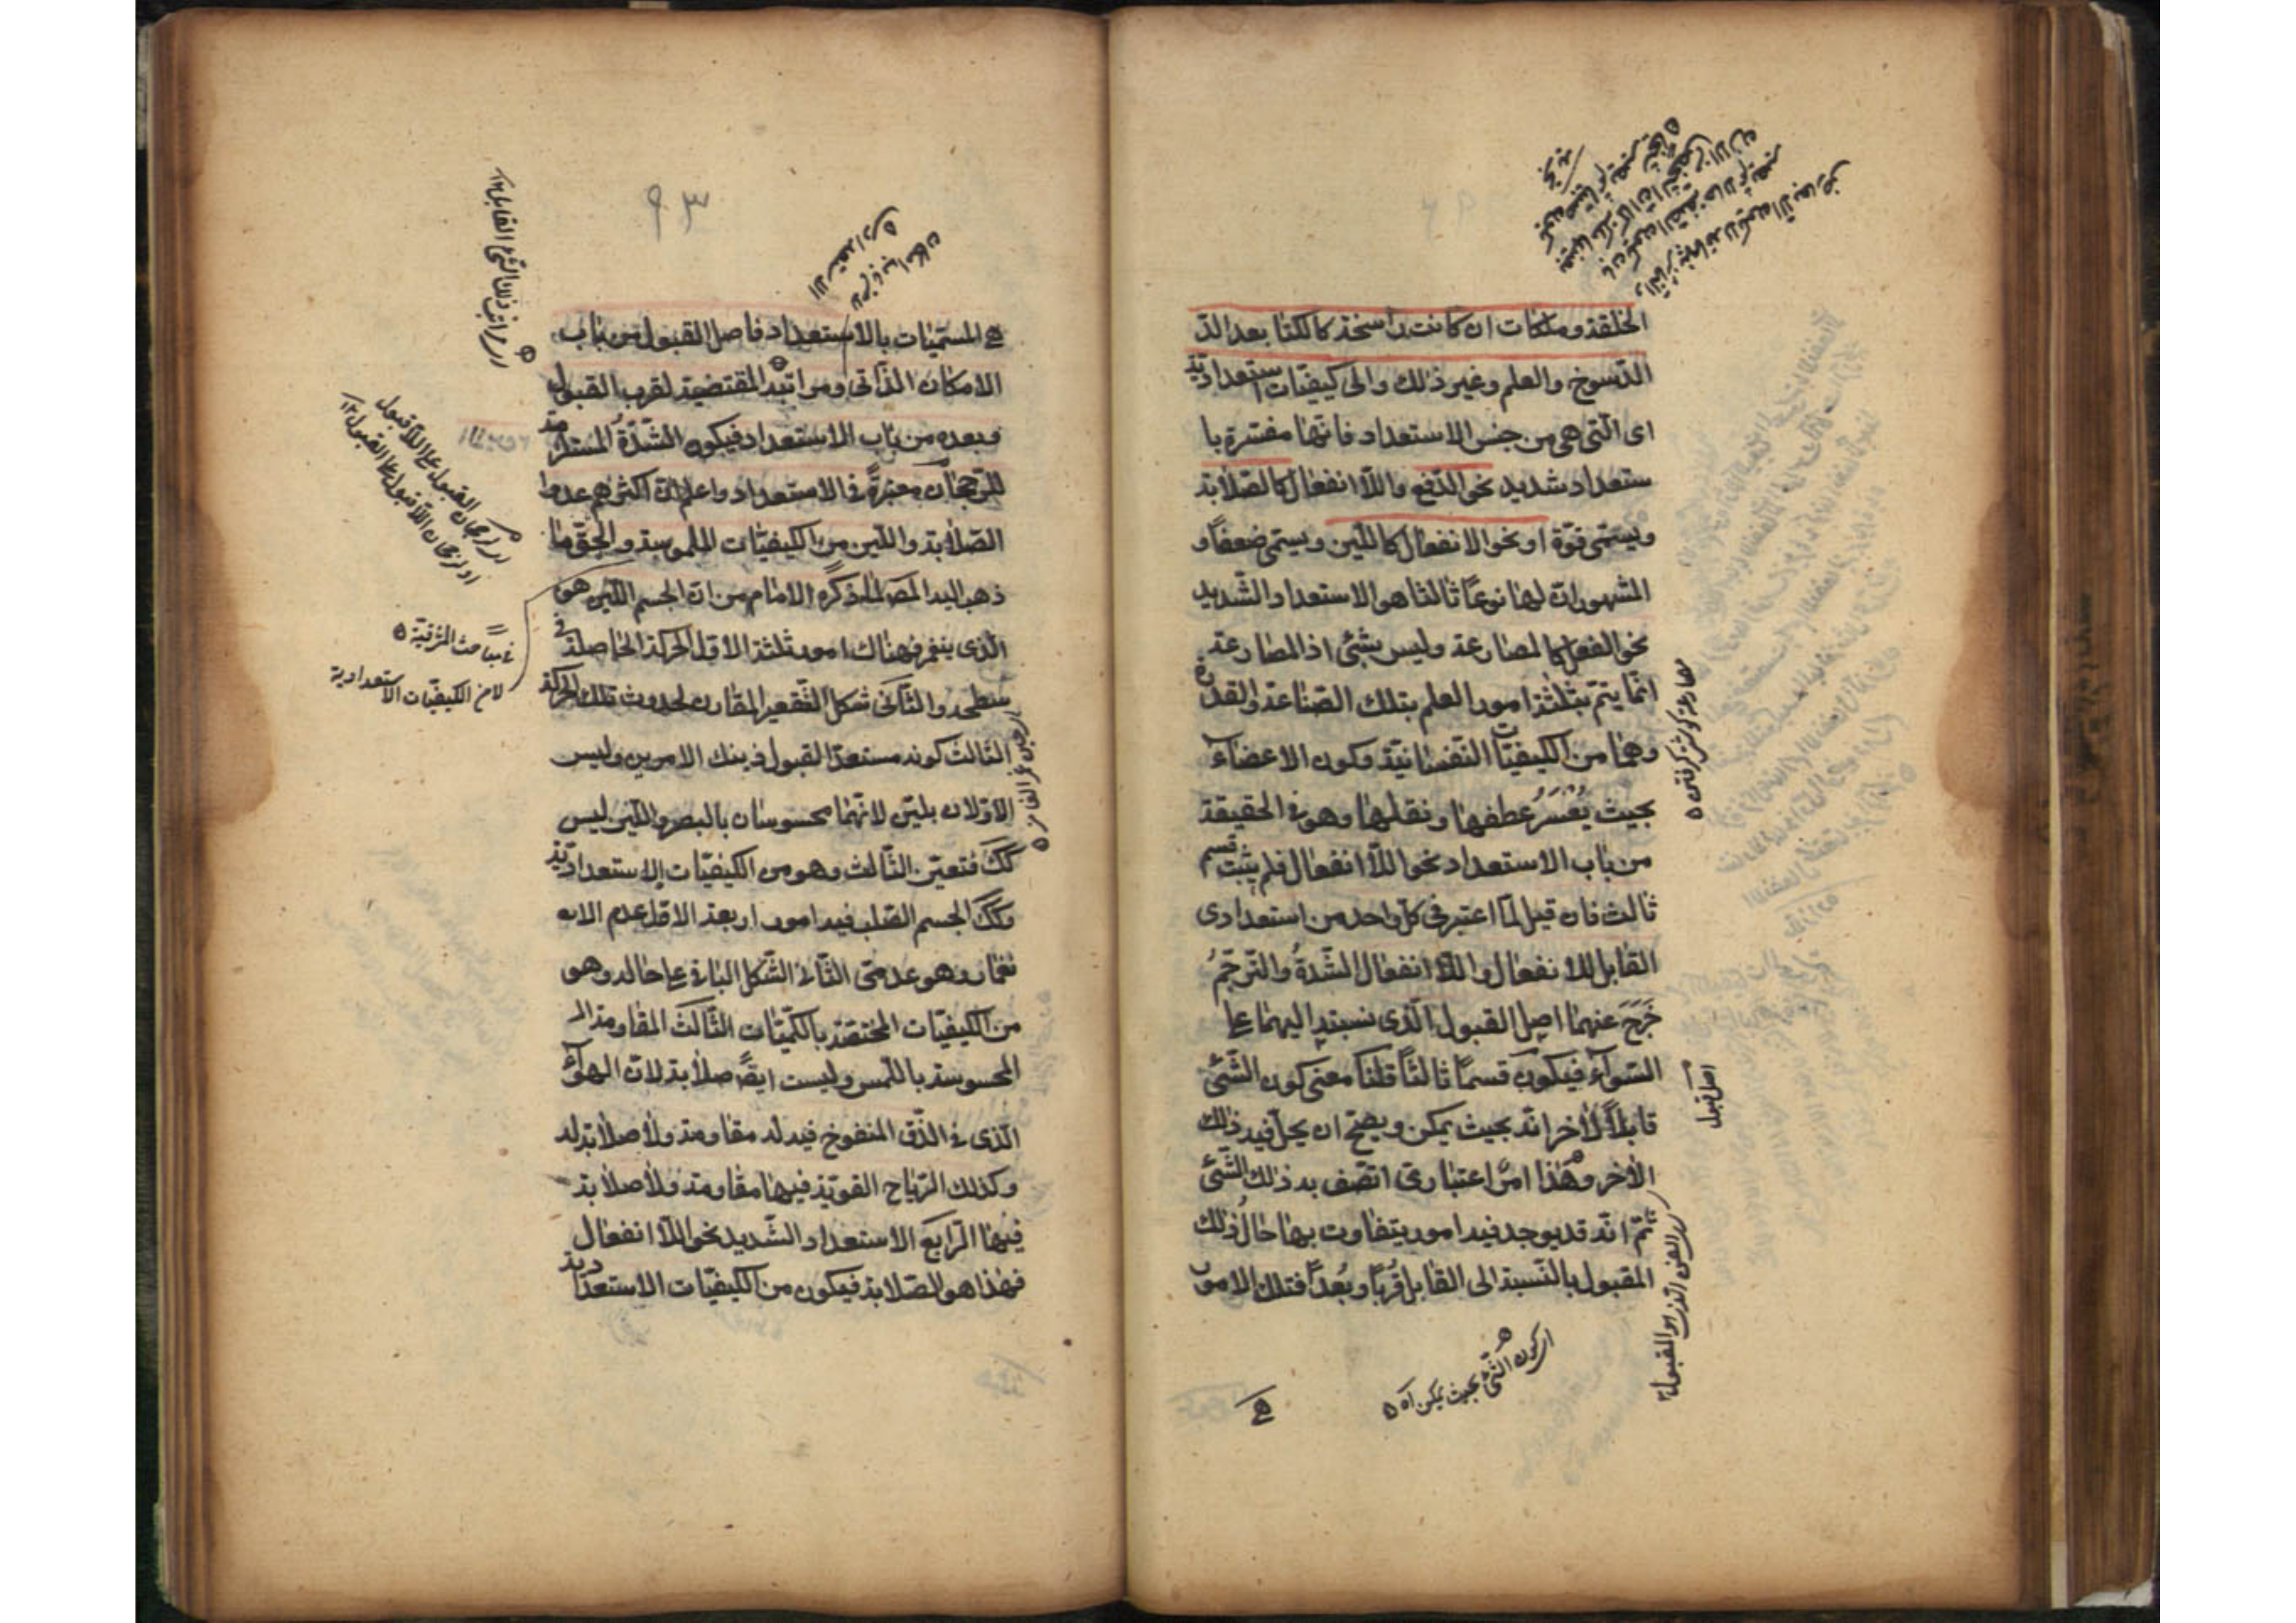 الخلقة وملكات ان كانت راسخة كالكتابة بعد الر
الرسوخ والعلم وغير ذلك والى كيفيّات استعداديّة
اى الّتى هى من جنس الاستعداد فانّها مفسّرة با
ستعداد شديد نحو الدّفع واللّاانفعال كالصّلابة
ويسمّى قوّة او نحو الانفعال كاللّين ويسمّى ضعفاً و
المشهور انّ لها نوعاً ثالثا هو الاستعداد الشّديد
نحو الفعل كالمصارعة وليس بشئ اذ المصارعة
انّما يتمّ بثلثة امور العلم بتلك الصّناعة والقدرة
وهما من الكيفيّات النّفسانيّة وكون الاعضاء
بحيث يُعْسَرُ عطفها ونقلها وهو فى الحقيقة
من باب الاستعداد نحو اللّاانفعال فلم يثبت قسم
ثالث فان قيل لمّا اعتبر فى كلّ واحد من استعدادى
القابل للانفعال واللّاانفعال الشّدةُ والتّرجّحُ
خَرَجَ عنهما اصل القبول الّذى نسبته اليهما على
السّوآء فيكون قسماً ثالثاً قلنا معنى كون الشّئ
قابلاً لآخر انّه بحيث يمكن ويصحّ ان يحلّ فيه ذلك
الآخر وهذا امر اعتبارىّ اتّصف به ذلك الشّئ
ثمّ انّه قد يوجد فيه امور يتفاوت بها حالُ ذلك
المقبول بالنّسبة الى القابل قُرباً وبُعداً فتلك الامور
اصل قبول
اى كون الشّئ بحيث يمكن آه
هى
٩٣
هى المسمّيات بالاستعداد فاصل القبول من باب
الامكان الذّاتى ومراتبه المقتضية لقرب القبول
وبعده من باب الاستعداد فيكون الشّدّةُ المستلزمة
للرّجحان معتبرةً فى الاستعداد واعلم انّ اكثرهم عدوا
الصّلابة واللّين من الكيفيّات الملموسة والحقّ ما
ذهب اليه المصـ لما ذكره الامام من انّ الجسم اللّين هو
الّذى ينغمز فهناك امور ثلثة الاوّل الحركة الحاصلة فى
سطحه والثّانى شكل التّقعير المقارن لحدوث تلك الحركة
الثالث كونه مستعدّا لقبول ذينك الامرين وليس
الاوّلان بلين لانّهما محسوسان بالبصر واللّين ليس
كك فتعيّن الثّالث وهو من الكيفيّات الاستعداديّة
وكك الجسم الصّلب فيه امور اربعة الاوّل عدم الانـ
نغماز وهو عدمىّ الثّانى الشّكل الباقى على حاله وهو
من الكيفيّات المختصّة بالكمّيّات الثّالث المقاومة الـ
المحسوسة باللّمس وليست ايضاً صلابة لانّ الهوآء
الّذى فى الزّق المنفوخ فيه له مقاومة ولا صلابة له
وكذلك الرّياح القويّة فيها مقاومة ولا صلابة
فيها الرّابع الاستعداد الشّديد نحو اللّاانفعال
فهذا هو الصّلابة فيكون من الكيفيّات الاستعداديّة
اى رجحان القبول على اللّاقبول
او رجحان اللّاقبول على القبول ١٢
فى مباحث المشرقيّة
لا من الكيفيّات الاستعدادية